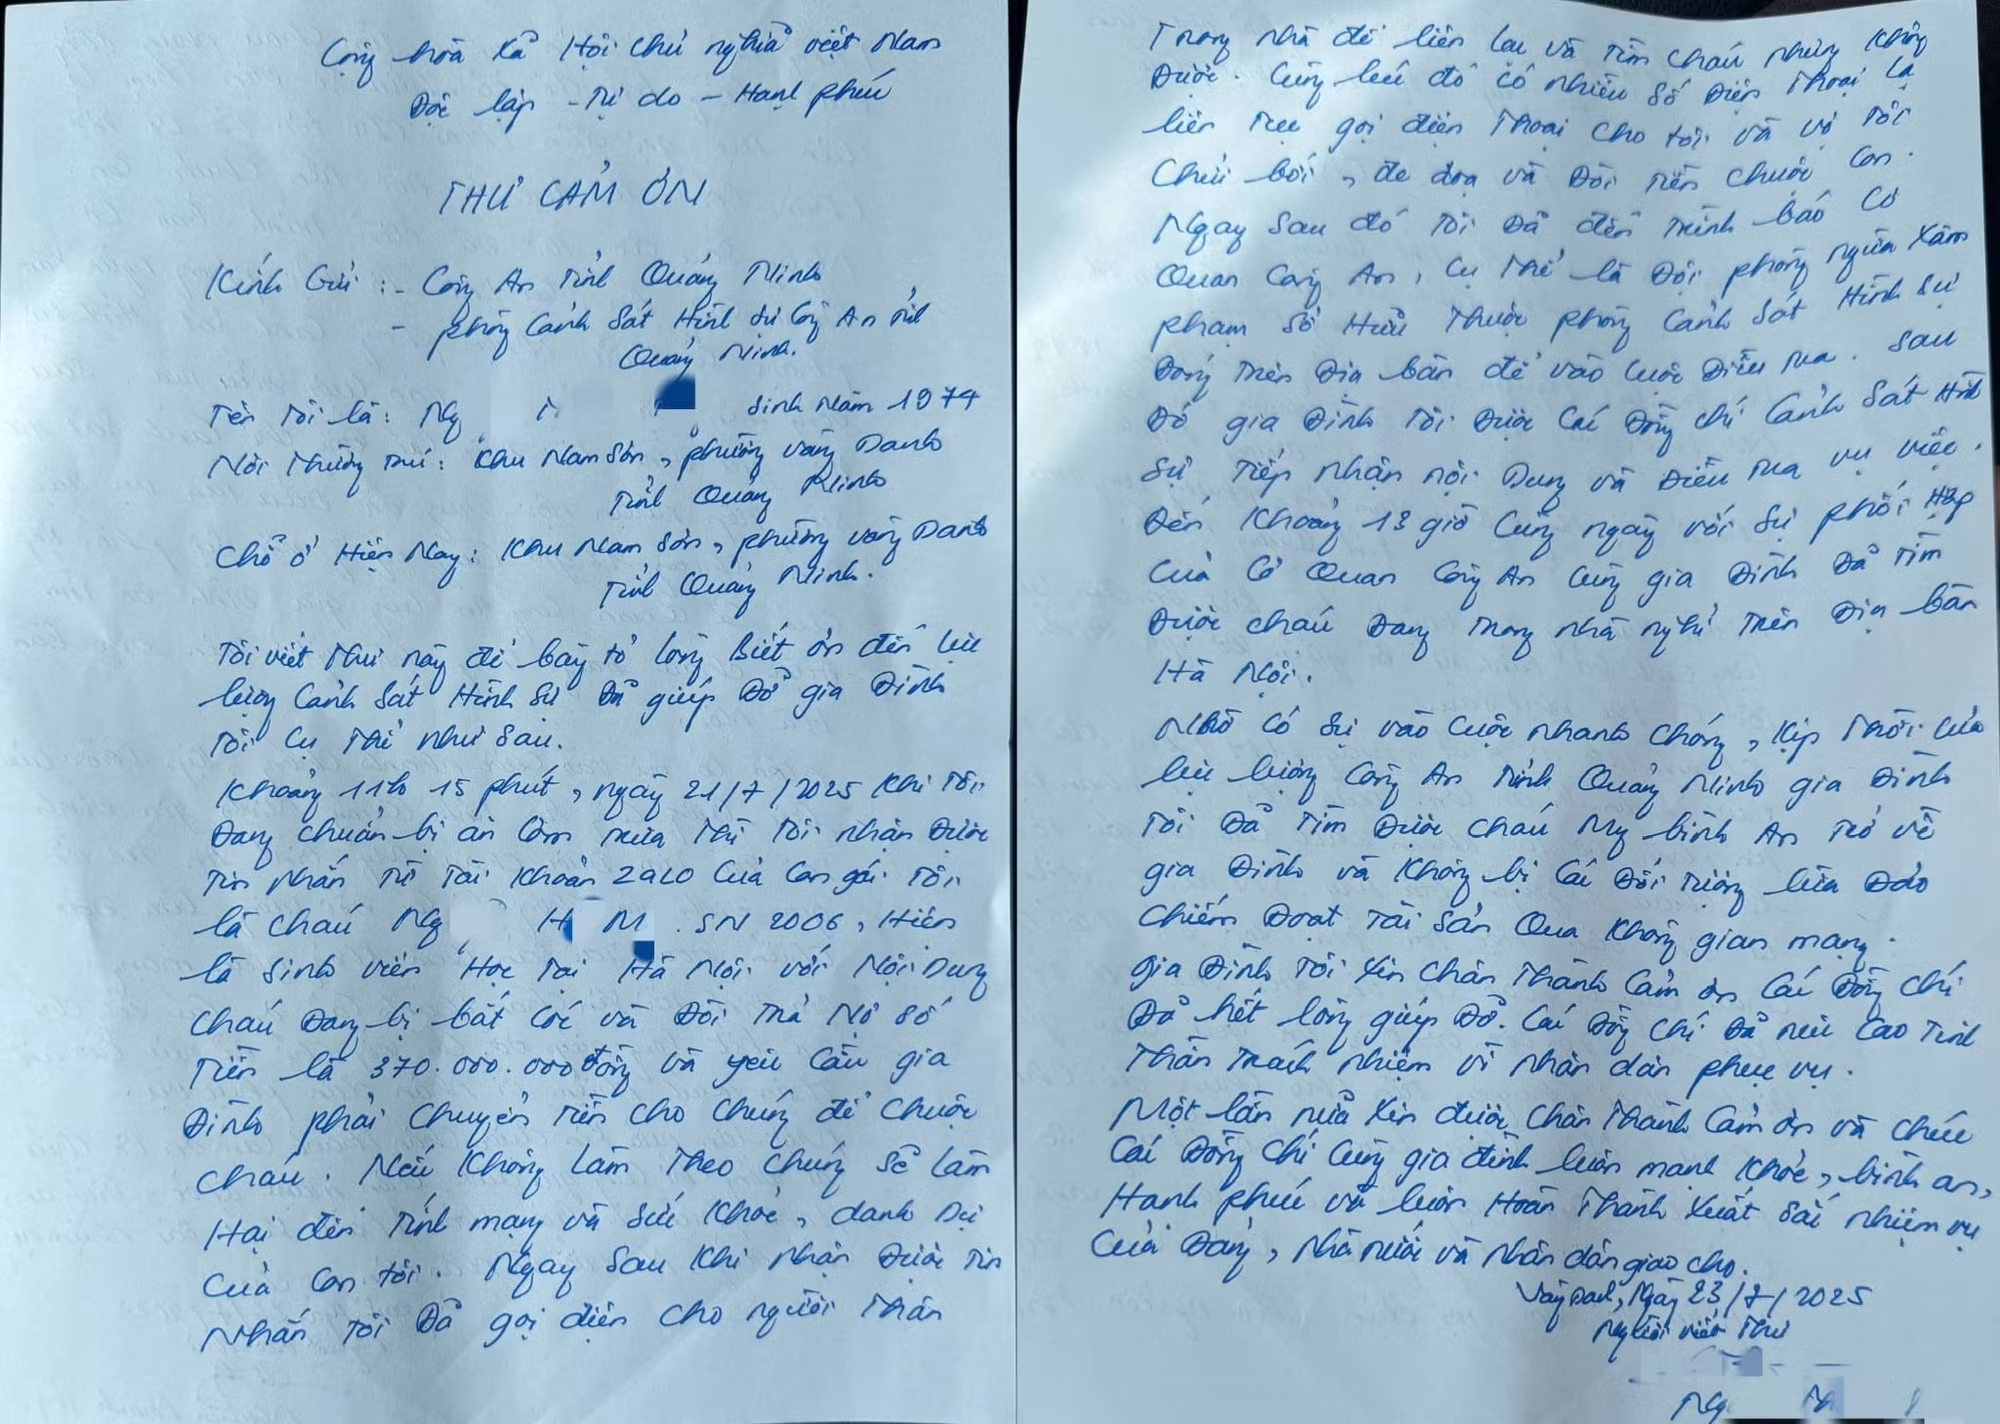 Cộng hoà Xã Hội chủ nghĩa việt Nam
Độc lập - Tự do - Hạnh phúc
THƯ CẢM ƠN
Kính Gửi : - Công An Tỉnh Quảng Ninh
- phòng Cảnh Sát Hình sự Công An Tỉnh
Quảng Ninh.
Tên Tôi là : Ng sinh Năm 1974
Nơi Thường trú : Khu Nam Sơn, phường vàng Danh
Tỉnh Quảng Ninh
Chỗ ở Hiện Nay : Khu Nam Sơn, phường vàng Danh
Tỉnh Quảng Ninh.
Tôi viết Thư này để bày tỏ lòng Biết ơn đến lực
lượng Cảnh Sát Hình Sự Đã giúp Đỡ gia Đình
Tôi Cụ Thể như Sau.
Khoảng 11h 15 phút, ngày 21/7/2025 Khi Tôi
Đang chuẩn bị ăn Cơm trưa Thì Tôi nhận Được
Tin nhắn Từ Tài Khoản Zalo Của Con gái Tôi
là cháu Ng H M . SN 2006, Hiện
là Sinh viên Học Tại Hà Nội với Nội Dung
cháu Đang bị bắt Cóc và Đòi Trả Nợ Số
Tiền là 370.000.000 đồng và yêu Cầu gia
Đình phải Chuyển Tiền cho Chúng để Chuộc
cháu. Nếu Không Làm Theo chúng Sẽ Làm
Hại đến Tính mạng và Sức Khỏe, danh Dự
Của Con tôi. Ngay Sau Khi Nhận Được Tin
Nhắn Tôi Đã gọi điện Cho người Thân
Trong nhà để liên lạc và Tìm cháu nhưng Không
Được. Cùng lúc đó có nhiều Số Điện Thoại Lạ
liên Tục gọi điện Thoại Cho tôi và vợ Tôi
Chửi bới, đe dọa và Đòi Tiền chuộc Con.
Ngay Sau đó Tôi Đã đến Trình báo Cơ
Quan Công An, Cụ Thể là Đội phòng ngừa Xâm
phạm Sở Hữu Thuộc phòng Cảnh Sát Hình Sự
Đóng Trên Địa bàn để vào Cuộc Điều Tra. Sau
Đó gia Đình Tôi Được Các Đồng chí Cảnh Sát Hình
Sự Tiếp Nhận nội Dung và Điều Tra vụ việc.
Đến Khoảng 13 giờ Cùng ngày với Sự phối Hợp
Của Cơ Quan Công An Cùng gia Đình Đã Tìm
Được cháu Đang Trong nhà nghỉ Trên Địa bàn
Hà Nội.
Nhờ Có Sự vào Cuộc nhanh chóng, Kịp Thời Của
lực lượng Công An Tỉnh Quảng Ninh gia Đình
Tôi Đã Tìm Được cháu My bình An Trở về
gia Đình và Không bị Các Đối Tượng lừa Đảo
Chiếm Đoạt Tài Sản Qua Không gian mạng.
gia Đình Tôi Xin Chân Thành Cảm ơn Các Đồng chí
Đã hết lòng giúp Đỡ. Các Đồng chí Đã nêu Cao Tinh
Thần Trách nhiệm vì nhân dân phục vụ.
Một lần nữa Xin được Chân Thành Cảm ơn và chúc
Các Đồng Chí Cùng gia đình luôn mạnh Khỏe, bình an,
Hạnh phúc và luôn Hoàn Thành Xuất Sắc nhiệm vụ
Của Đảng, Nhà nước và Nhân dân giao cho.
Vàng Danh, Ngày 23/7/2025
Người viết Thư
Ng